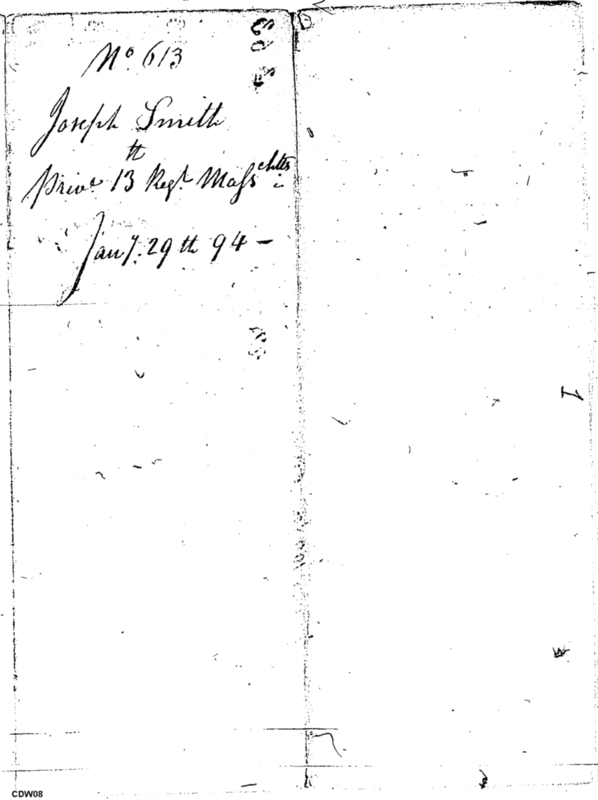 No. 613
Joseph Smith
Priv.e 13th Regt. Masschtts
Jany. 29th 94 -
1
CDW08